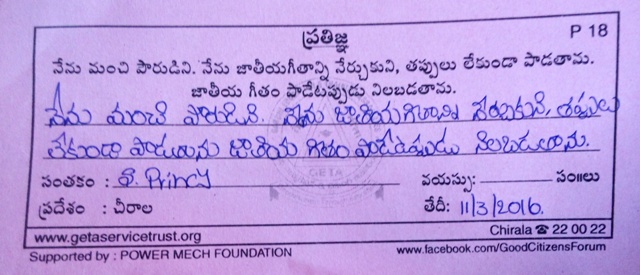 ప్రతిజ్ఞ
P 18
నేను మంచి పౌరుడిని. నేను జాతీయగీతాన్ని నేర్చుకుని, తప్పులు లేకుండా పాడతాను.
జాతీయ గీతం పాడేటప్పుడు నిలబడతాను.
నేను మంచి పౌరుడిని. నేను జాతీయగీతాన్ని నేర్చుకుని, తప్పులు
లేకుండా పాడుతాను జాతీయ గీతం పాడేటప్పుడు నిలబడుతాను.
సంతకం : Princy
వయస్సు: సం॥లు
ప్రదేశం : చీరాల
తేదీ: 11/3/2016.
www.getaservicetrust.org
Chirala ☎ 22 00 22
Supported by : POWER MECH FOUNDATION
www.facebook.com/GoodCitizensForum
GETA